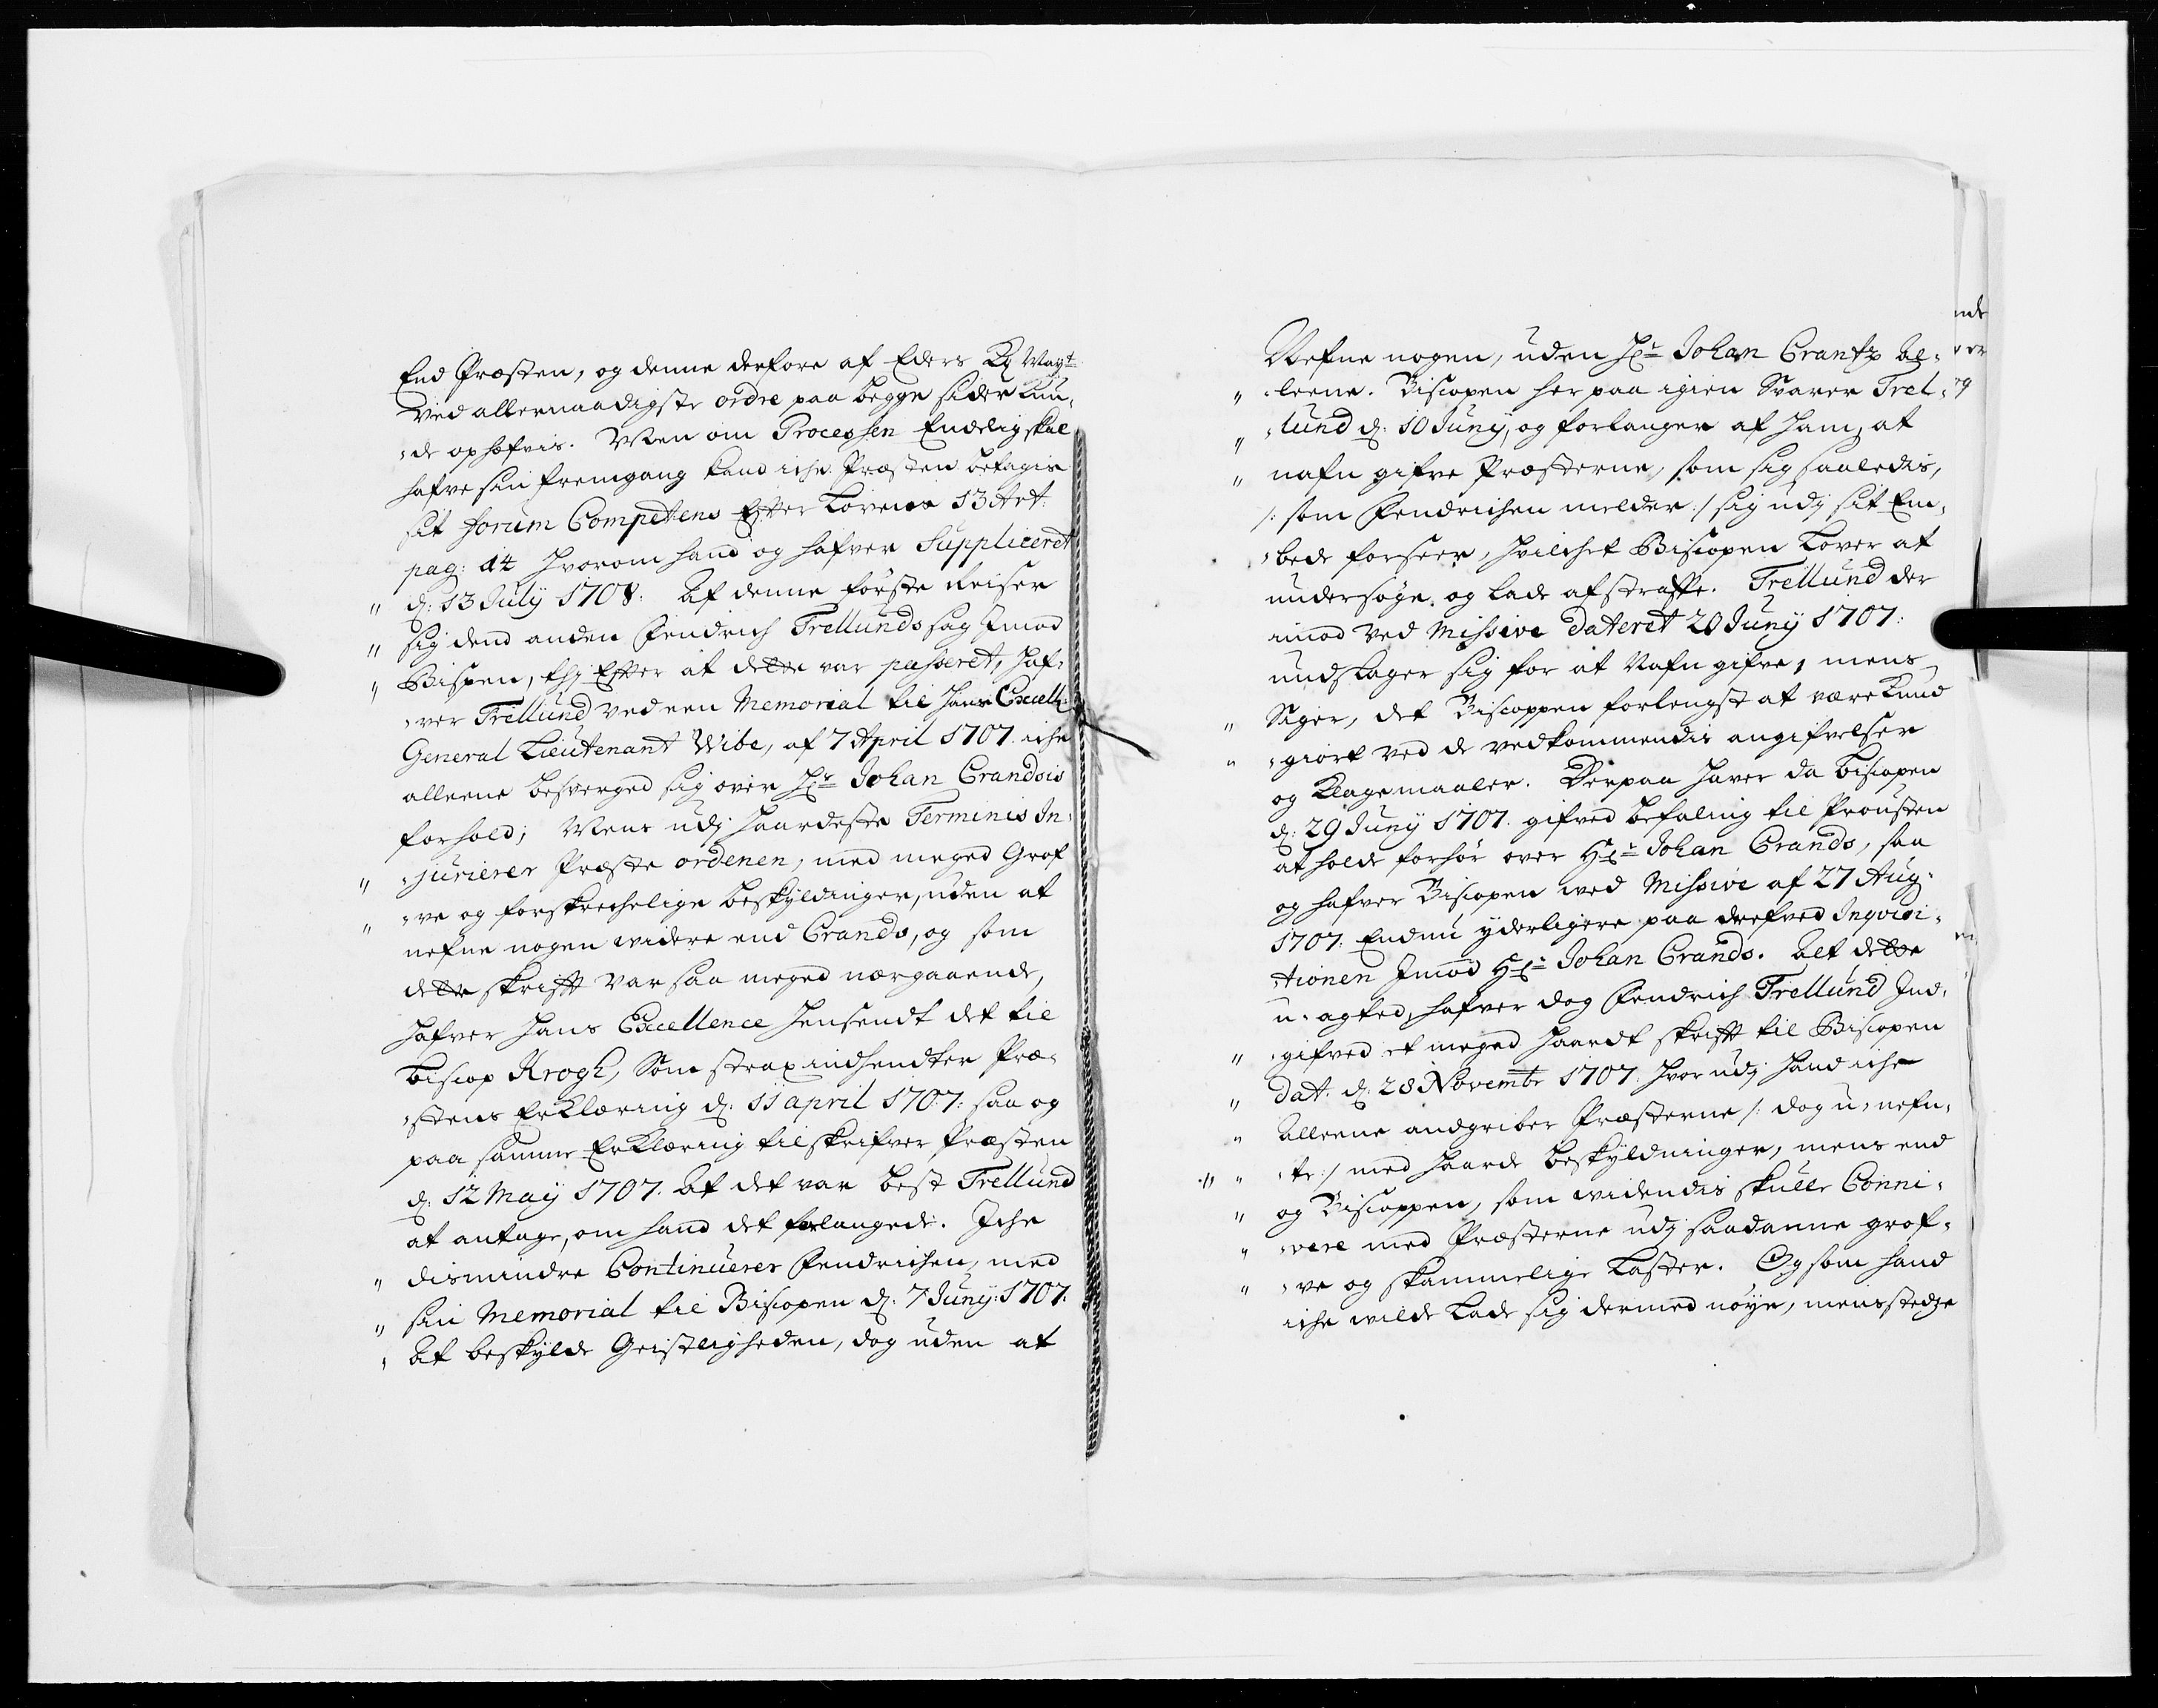 End Præsten, og denne derfore af Eders Kg Mayt
ved allernaadigste ordre paa begge sider kun-
-de ophæfvis. Men om Processen Endelig skal
hafve sin fremgang kand iche Præsten betagis
sit forum Competens Efter Lovens 13 Art:
pag: 14 hvorom hand og hafver Suppliceret
" d: 13 July 1708. Af denne förste Reiser
" sig dend anden Fendrich Trellunds sag Jmod
" Bispen, thj Efter at dette var passeret, haf-
-ver Trellund ved een Memorial til hans Excell:
General Lieutenant Wibe, af 7 April 1707 iche
alleene besverged sig over Hr Johan Crandsis
forhold; Mens udj haardeste Terminis In-
" -jurierer Præste ordenen, med meged Grof-
" -ve og forskrechelige beskyldinger, uden at
nefne nogen widere end Crands, og som
dette skrifft var saa meged nærgaaende,
hafver hans Excellence hensendt det til
biscop Krogh, Som strax indhendter Præ-
-stens Erklæring d: 11 april 1707: saa og
paa samme Erklæring tilskrifver Præsten
d: 12 May 1707. At det var best Trellund
at antage, om hand det forlangede. Iche
" dismindre Continuerer Fendrichen, med
" sin Memorial til Biscopen d: 7 Juny: 1707.
" At beskylde Geistligheden, dog uden at
Nefne nogen, uden Hr Johan Crantz al-
" -leene. Biscopen her paa igien Svarer Trel-
" -lund d: 10 Juny, og forlanger af ham, at
" nafn gifve Præsterne, som sig saaledis,
/: som Fendrichen melder :/ sig udj sit Em-
-bede forseer, hvilchet Biscopen Lover at
undersøge og lade afstraffe. Trellund der
imod ved Missive Dateret 20 Juny 1707:
undslager sig for at Nafn gifve, mens
" Siger, det Biscoppen forlengst at være kund
" -giort ved de vedkommendis angifvelser
og klagemaaler. Derpaa haver da biscopen
d: 29 Juny 1707. gifved befaling til Prousten
at holde forhør over Hr Johan Crands, saa
og hafver Biscopen ved Missive af 27 Aug:
1707. Endnu yderligere paa drefved Inqvisi-
-tionen Jmod Hr Johan Crands. Alt dette
u-agted, hafver dog Fendrich Trellund Ind-
" -gifved et meged haardt skrifft til Biscopen
" dat. d: 28 Novembr 1707. hvor udj hand iche
" Alleene andgriber Præsterne /: dog u-nefn-
" " -te :/ med haarde beskyldninger, mens end
" og Biscoppen, som widendis skulle Conni-
" -vere med Præsterne udj saadanne grof-
" -ve og skammelige Laster. Og som hand
iche wilde Lade sig dermed nøye, mens stedze